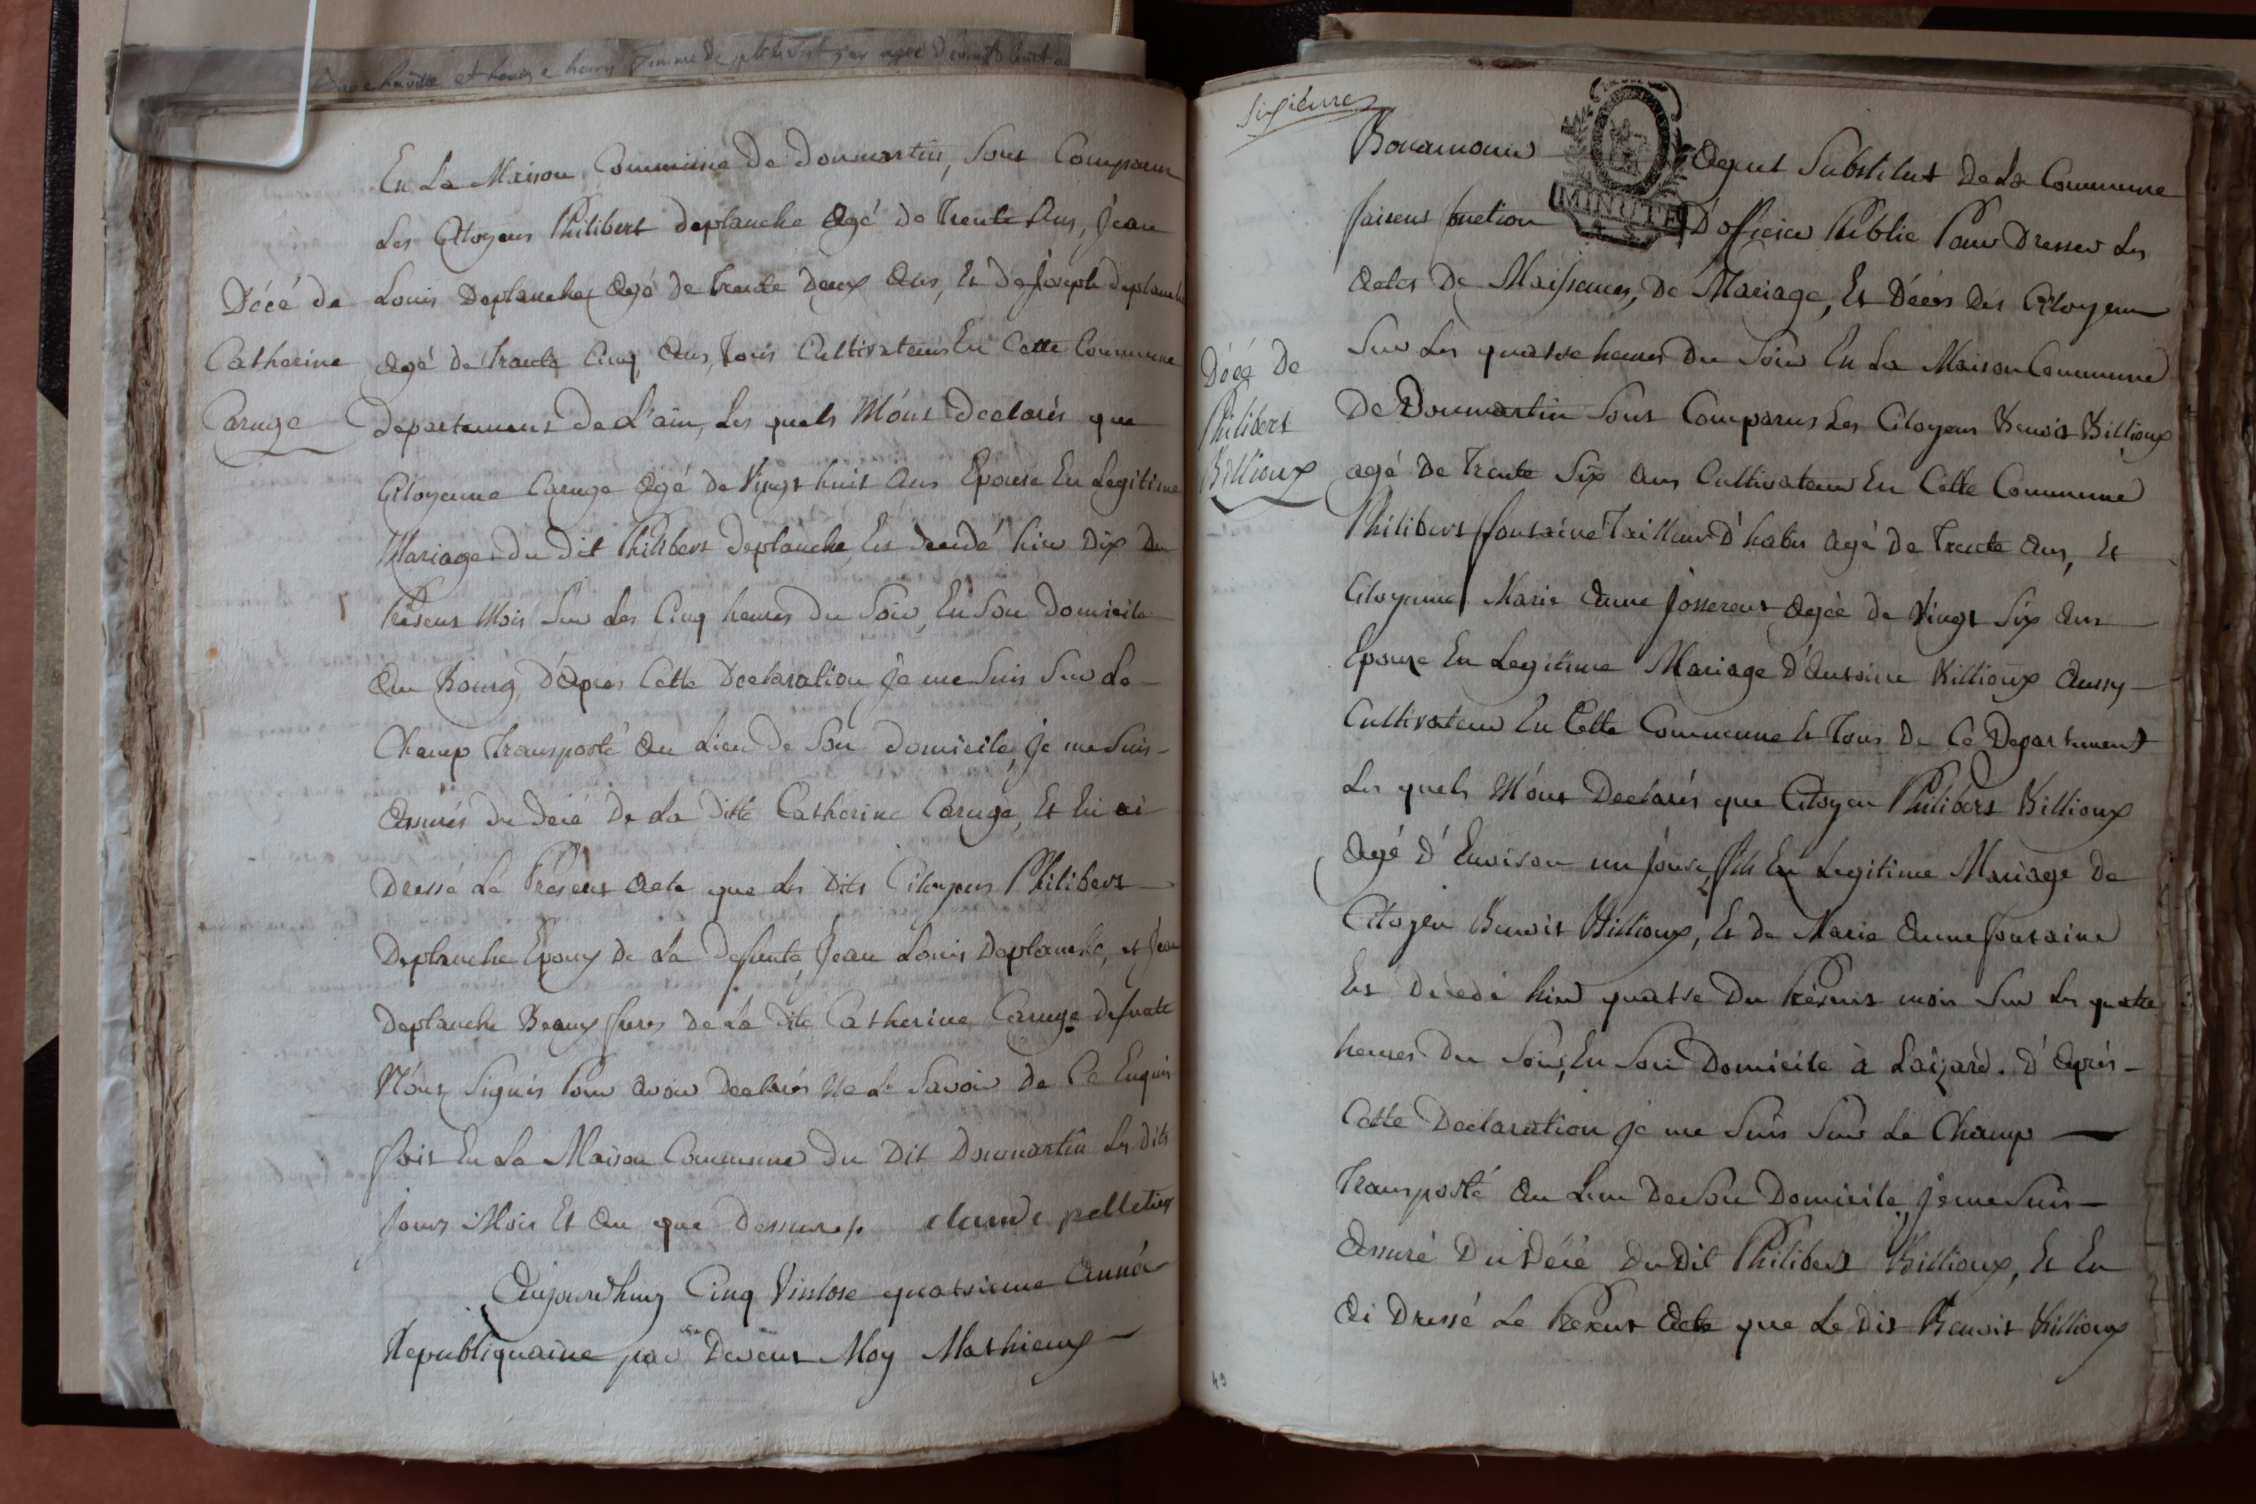 En La Maison Commune De donmartin, sont Comparus
Les Citoyens Philibert deplanche Agé de Trente Ans, Jean
Décé de
Catherine
Caruge
Louis Deplanche Agé de trente deux Ans, Et De Joseph deplanche
Agé de Trante Cinq Ans, Tous Cultivateurs En Cette Commune
Departement De L'ain, Les quels M'ont Declarés que
Citoyenne Caruge Agé de Vingt huit Ans Epouse En Legitime
Mariage du dit Philibert deplanche Est decedé hier Dix Du
Présent Mois Sur Les Cinq heures Du Soir, En Son Domicile
Au Bourg, D'après Cette Declaration Je me Suis Sur Le
Champ Transporté Au Lieu de Son domicile, Je me Suis
Assurés du décé De La ditte Catherine Caruge, Et En ai
Dressé Le Présent Acte que Les Dits Citoyens Philibert
Deplanche Epoux De La defunte, Jean Louis Deplanche, et Jean
Deplanche Beaux freres De La dite Catherine Caruge defunte
N'ont Signés Pour Avoir Declarés Ne Le Savoir De Ce Enquis
fait En La Maison Commune Du Dit Donmartin Les Dits
Jours Mois Et An que Dessus claude pelletier
Aujourdhuy Cinq Vintose quatrieme Année
Republiquaine par Devant Moy Mathieux
Sixième
Bonamour Agent Substitut De La Commune
MINUTE
faisent fonction D'officier Public Pour Dresser Les
Actes De Naissances, De Mariage, Et Décès Des Citoyens
Sur Les quatre heures Du Soir En La Maison Commune
Décé De
Philibert
Billioux
De Donmartin Sont Comparus Les Citoyens Benoit Billioux
agé De Trente Six Ans Cultivateur En Cette Commune
Philibert fontaine Tailleur D'habis Agé De Trente Ans, Et
Citoyenne Marie Anne Josserent Agée De Vingt Six Ans
Epouze En Legitime Mariage D'Antoine Billioux Aussy
Cultivateur En Cette Commune Et Tous De Ce Departement
Les quels M'ont Declarés que Citoyen Philibert Billioux
Agé D'Environ un Jour, fils En Legitime Mariage De
Citoyen Benoit Billioux, Et De Marie Anne fontaine
Est Décédé hier quatre Du Présent mois Sur Les quatre
heures Du Soir, En Son Domicile à Laizard. D'Après
Cette Declaration Je me Suis Sur Le Champ
Transporté Au Lieu De Son Domicile, Je me Suis
Assuré Du Décé Du Dit Philibert Billioux, Et En
Ai Dressé Le Présent Acte que Le Dit Benoit Billioux
49